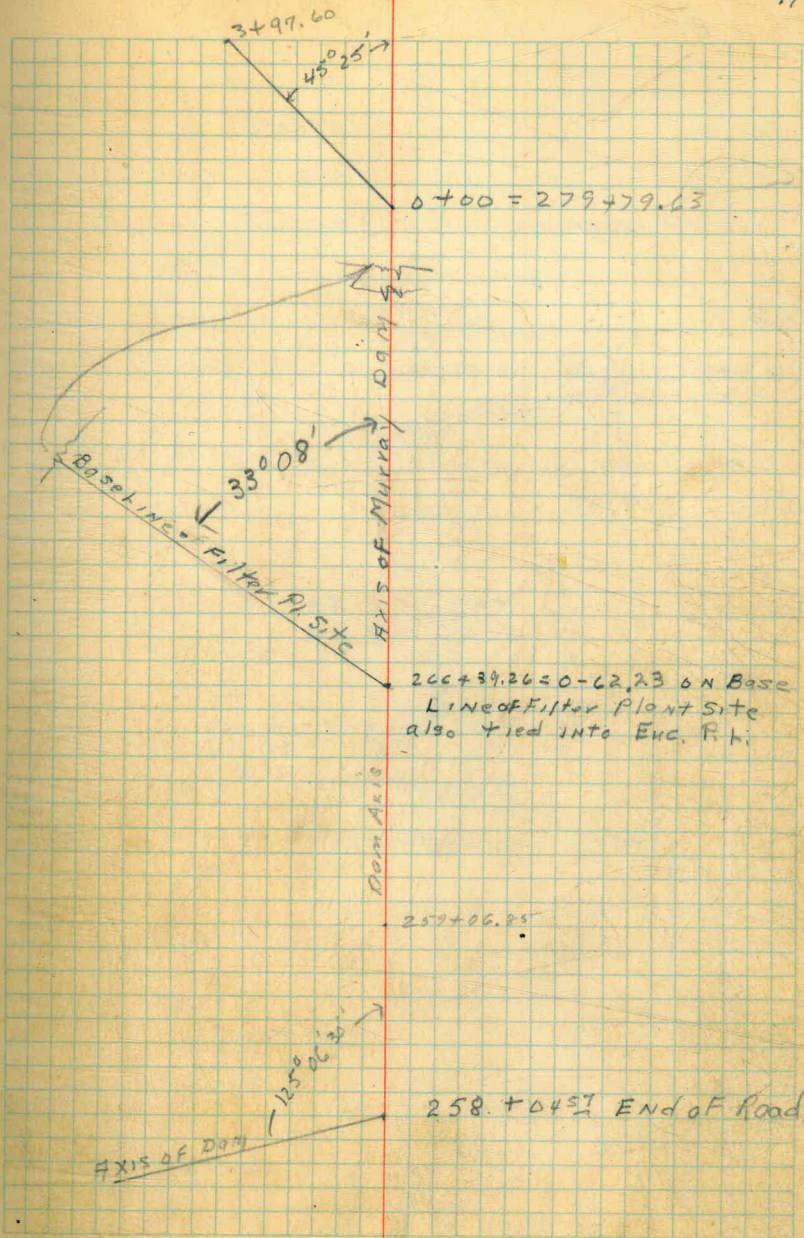 3+97.60
45° 25'
0+00 = 279+79.63
Axis of Murray Dam
33° 08'
Base Line of Filter Pl. Site
266+39.26=0-62.23 on Base
Line of Filter Plant Site
also tied into Enc. P.L.
Dam Axis
259+06.85
125° 06' 30"
258.+04 57 End of Road
Axis of Dam